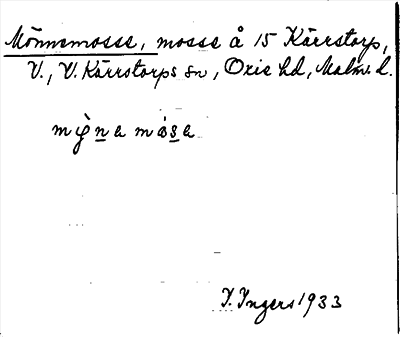 Mönnemosse, mosse å 15 Kärrstorp,
V., V. Kärrstorps sn, Oxie hd, Malm. l.
I. Ingers 1933